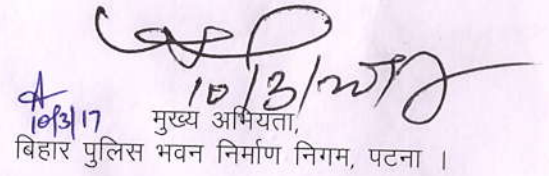 10/3/2017
10/3/17 मुख्य अभियता,
बिहार पुलिस भवन निर्माण निगम, पटना ।